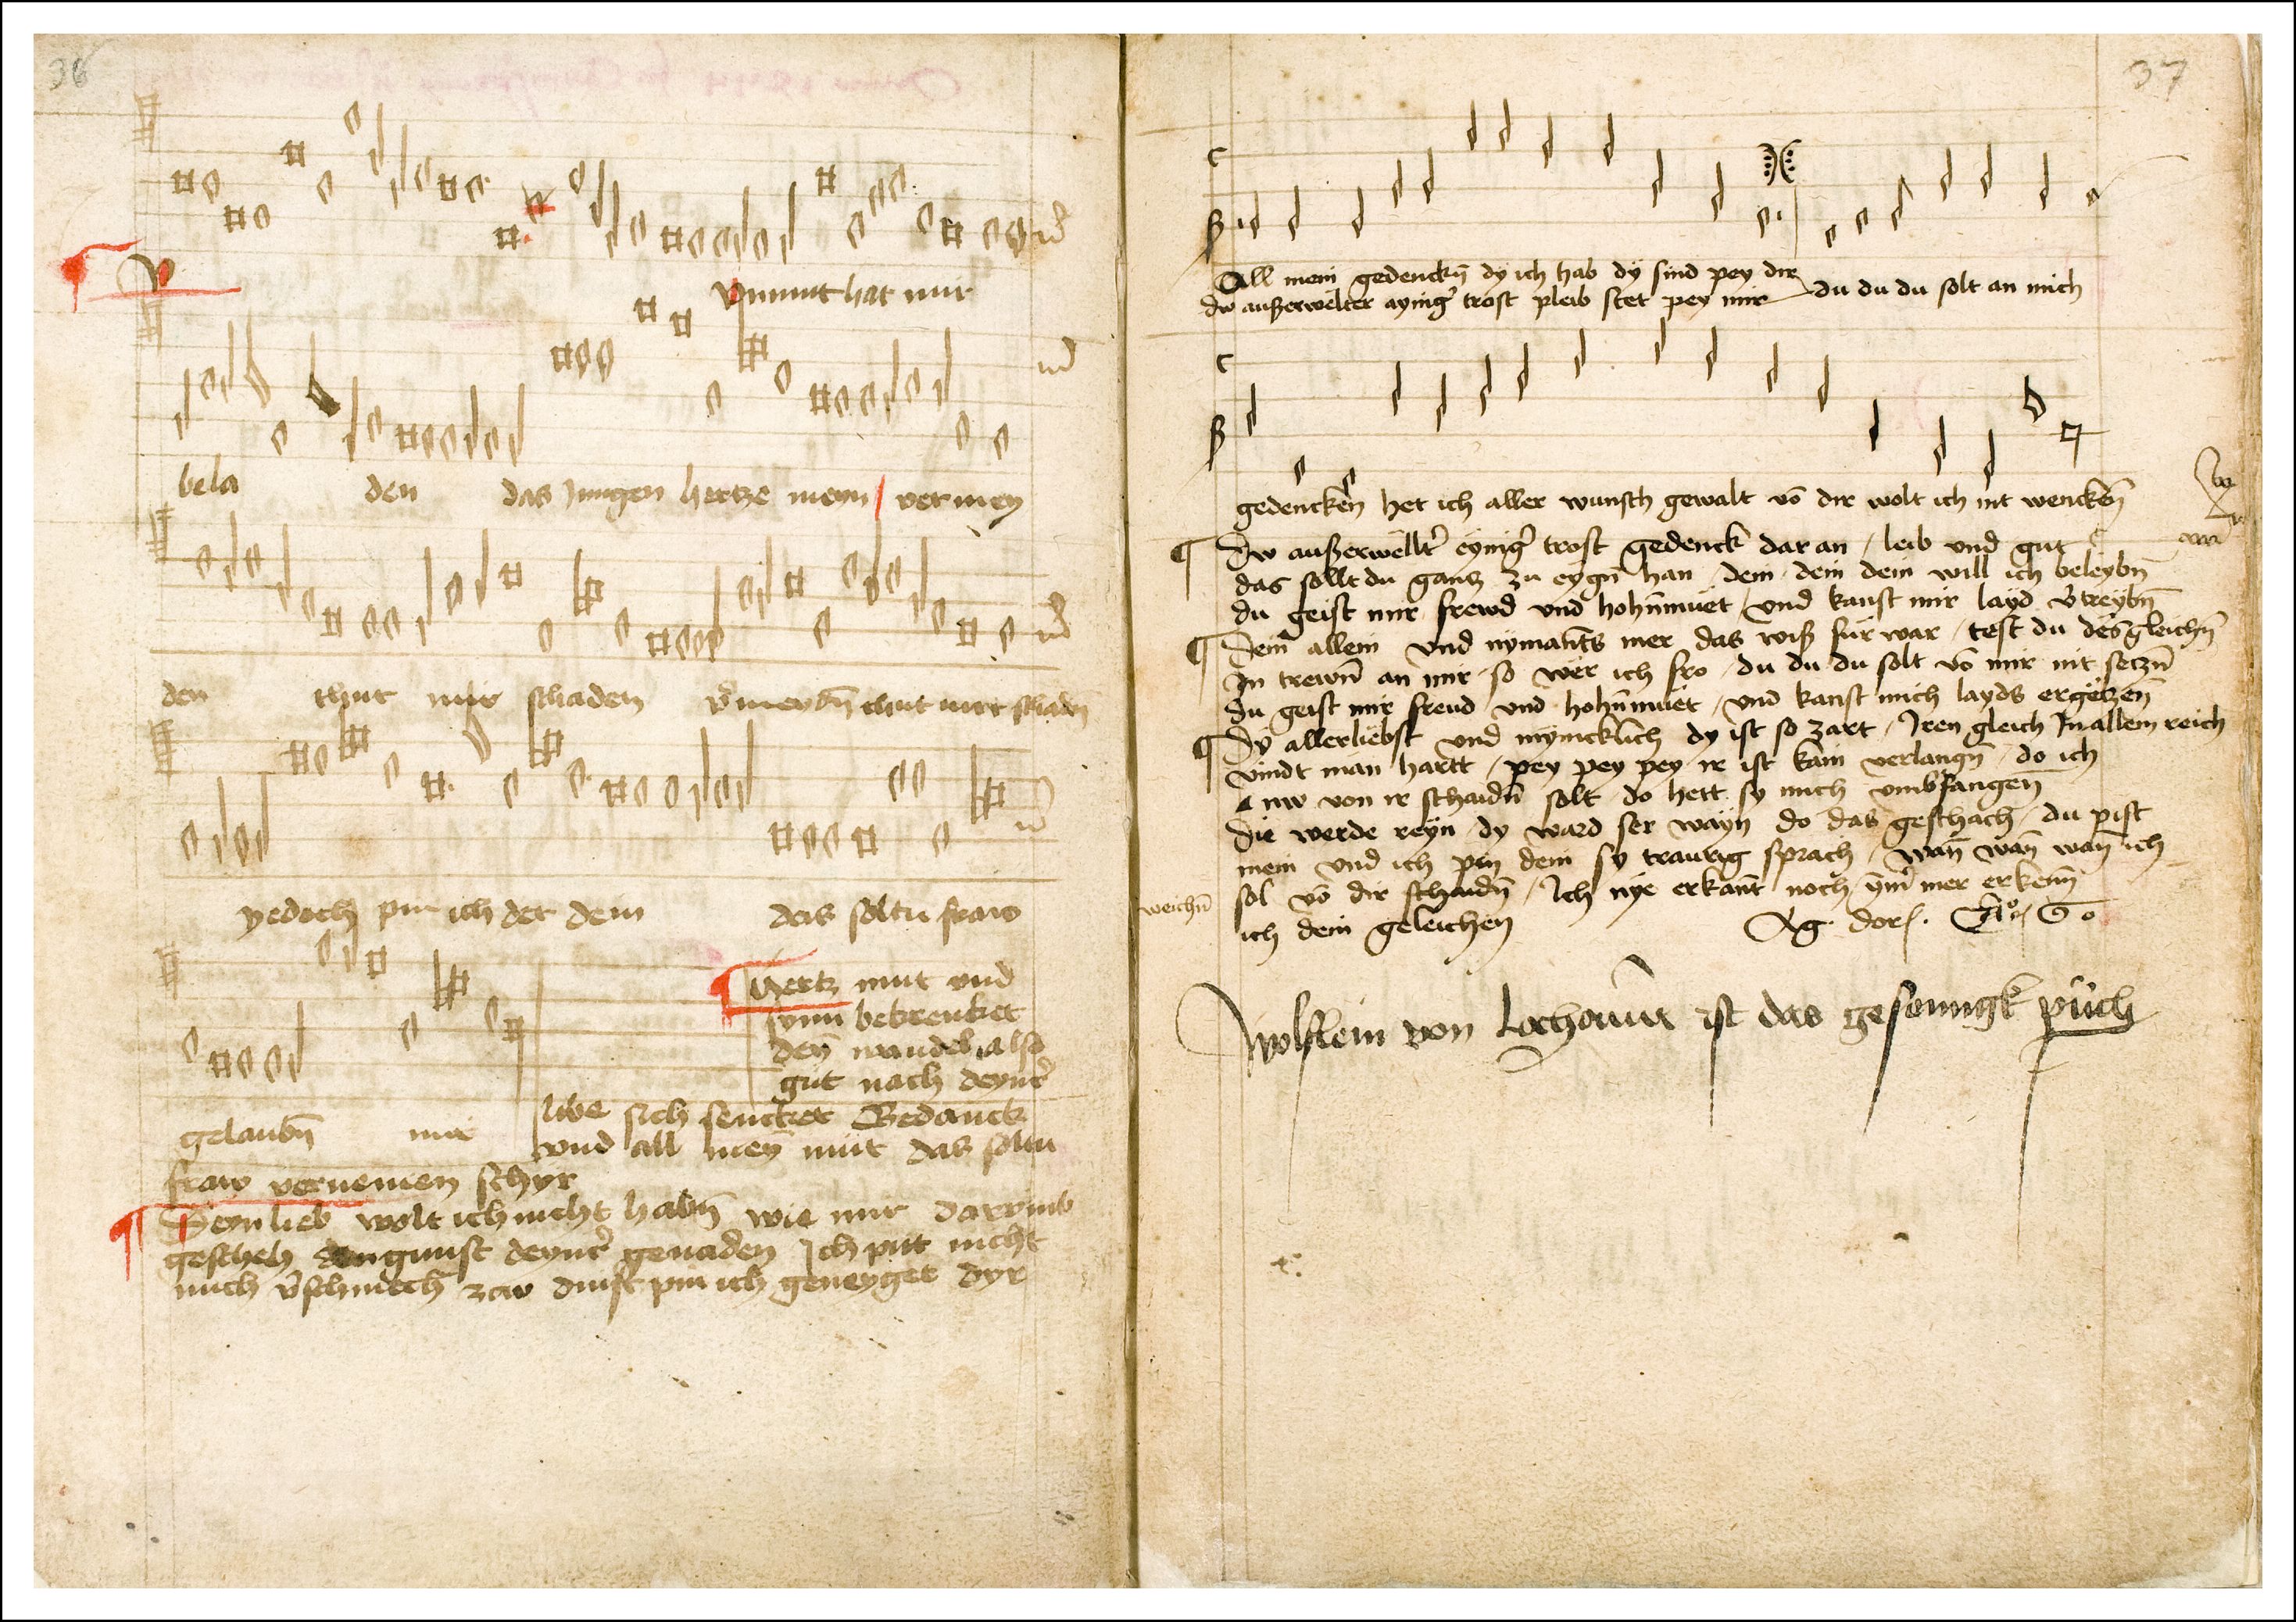 36
Vnmut hat mir
bela den das Jungen hertze mein vermey
den thut mir schaden v̄meydn̄ thut mir schadn̄
yedoch pin ich der dein das soltu fraw
Hertz mut vnd
synn bekrencket
deyn̄ wandel also
gut nach deyner̄
libe sich sencket Gedanck
gelaubn̄ mir vnd all meyn̄ mut das soltu
fraw vernemen schyr
Deyn lieb wolt ich nicht habn̄ wie mir darvmb
gescheh gunst deyner̄ genaden Ich pitt nicht
mich v̄schmech zw dinst pin ich geneyget dyr
37
All mein gedenckn̄ dy ich hab dy sind pey dir
du außerwelter aynigr̄ trost pleib stet pey mir du du du solt an mich
gedencken̄ het ich aller wunsch gewalt vō dir wolt ich nit wencken̄
Dw außerwelltr̄ eynigr̄ trost gedenck dar an / leib vnd gut
das sollt du gantz zu eygn̄ han / dein dein dein will ich beleybn̄
du geist mir frewd vnd hohn̄muet / vnd kanst mir layd v̄treybn̄
Dein allein vnd nymants mer das wiß fur war / test du des gleichn̄
In trewn̄ an mir so wer ich fro / du du du solt vō mir nit setzn̄
du geist mir freud vnd hohn̄muet / vnd kanst mich layds ergetzen̄
Dy allerliebst vnd mynicklich dy ist so zart / Iren gleich In allem reich
vindt man hartt / pey pey pey ir ist kain verlangn̄ / do ich
nw von ir schaidn̄ solt do hett sy mich vmbfangen̄
Die werde reyn / dy ward ser wayn do das geschach / du pist
mein vnd ich pin dein sy traurig sprach / wan̄ wan̄ wan̄ ich
sol vō dir schaidn̄ / Ich nye erkant noch ȳm̄ mer erkenn̄
weichn̄
ich dein geleichen
Wolflein von Lochamer ist das gesenngk pǔch